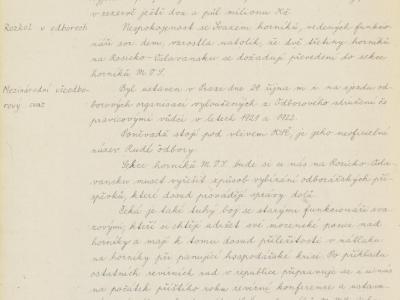 v reservě ještě dva a půl milionu Kč
Rozkol v odborech
Nespokojenost se Svazem horníků, vedených funkcio-
náři soc. dem., vzrostla natolik, že dvě třetiny horníků
na Rosicko-Oslavansku se dožadují převedení do sekce
horníků M.O.S.
Mezinárodní všeodbo-
rový svaz
Byl ustaven v Praze dne 29. října m. r. na sjezdu od-
borových organisací vyloučených z Odborového sdružení čs.
pravicovými vůdci v letech 1921 a 1922.
Poněvadž stojí pod vlivem KSČ, je jeho neoficielní
název Rudé odbory.
Sekce horníků M.O.S. bude se i u nás na Rosicko-Osla-
vansku muset vyřídit způsob vybírání odborářských pří-
spěvků, které dosud provádějí správy dolů.
Čeká je také tuhý boj se starými funkcionáři sva-
zovými, kteří si chtějí udržet své mocenské posice nad
horníky a mají k tomu dosud příležitosti v nátlaku
na horníky při panující hospodářské krisi. Po příkladu
ostatních revírních rad v republice připravuje se i u nás
na počátek příštího roku revírní konference a ustave-